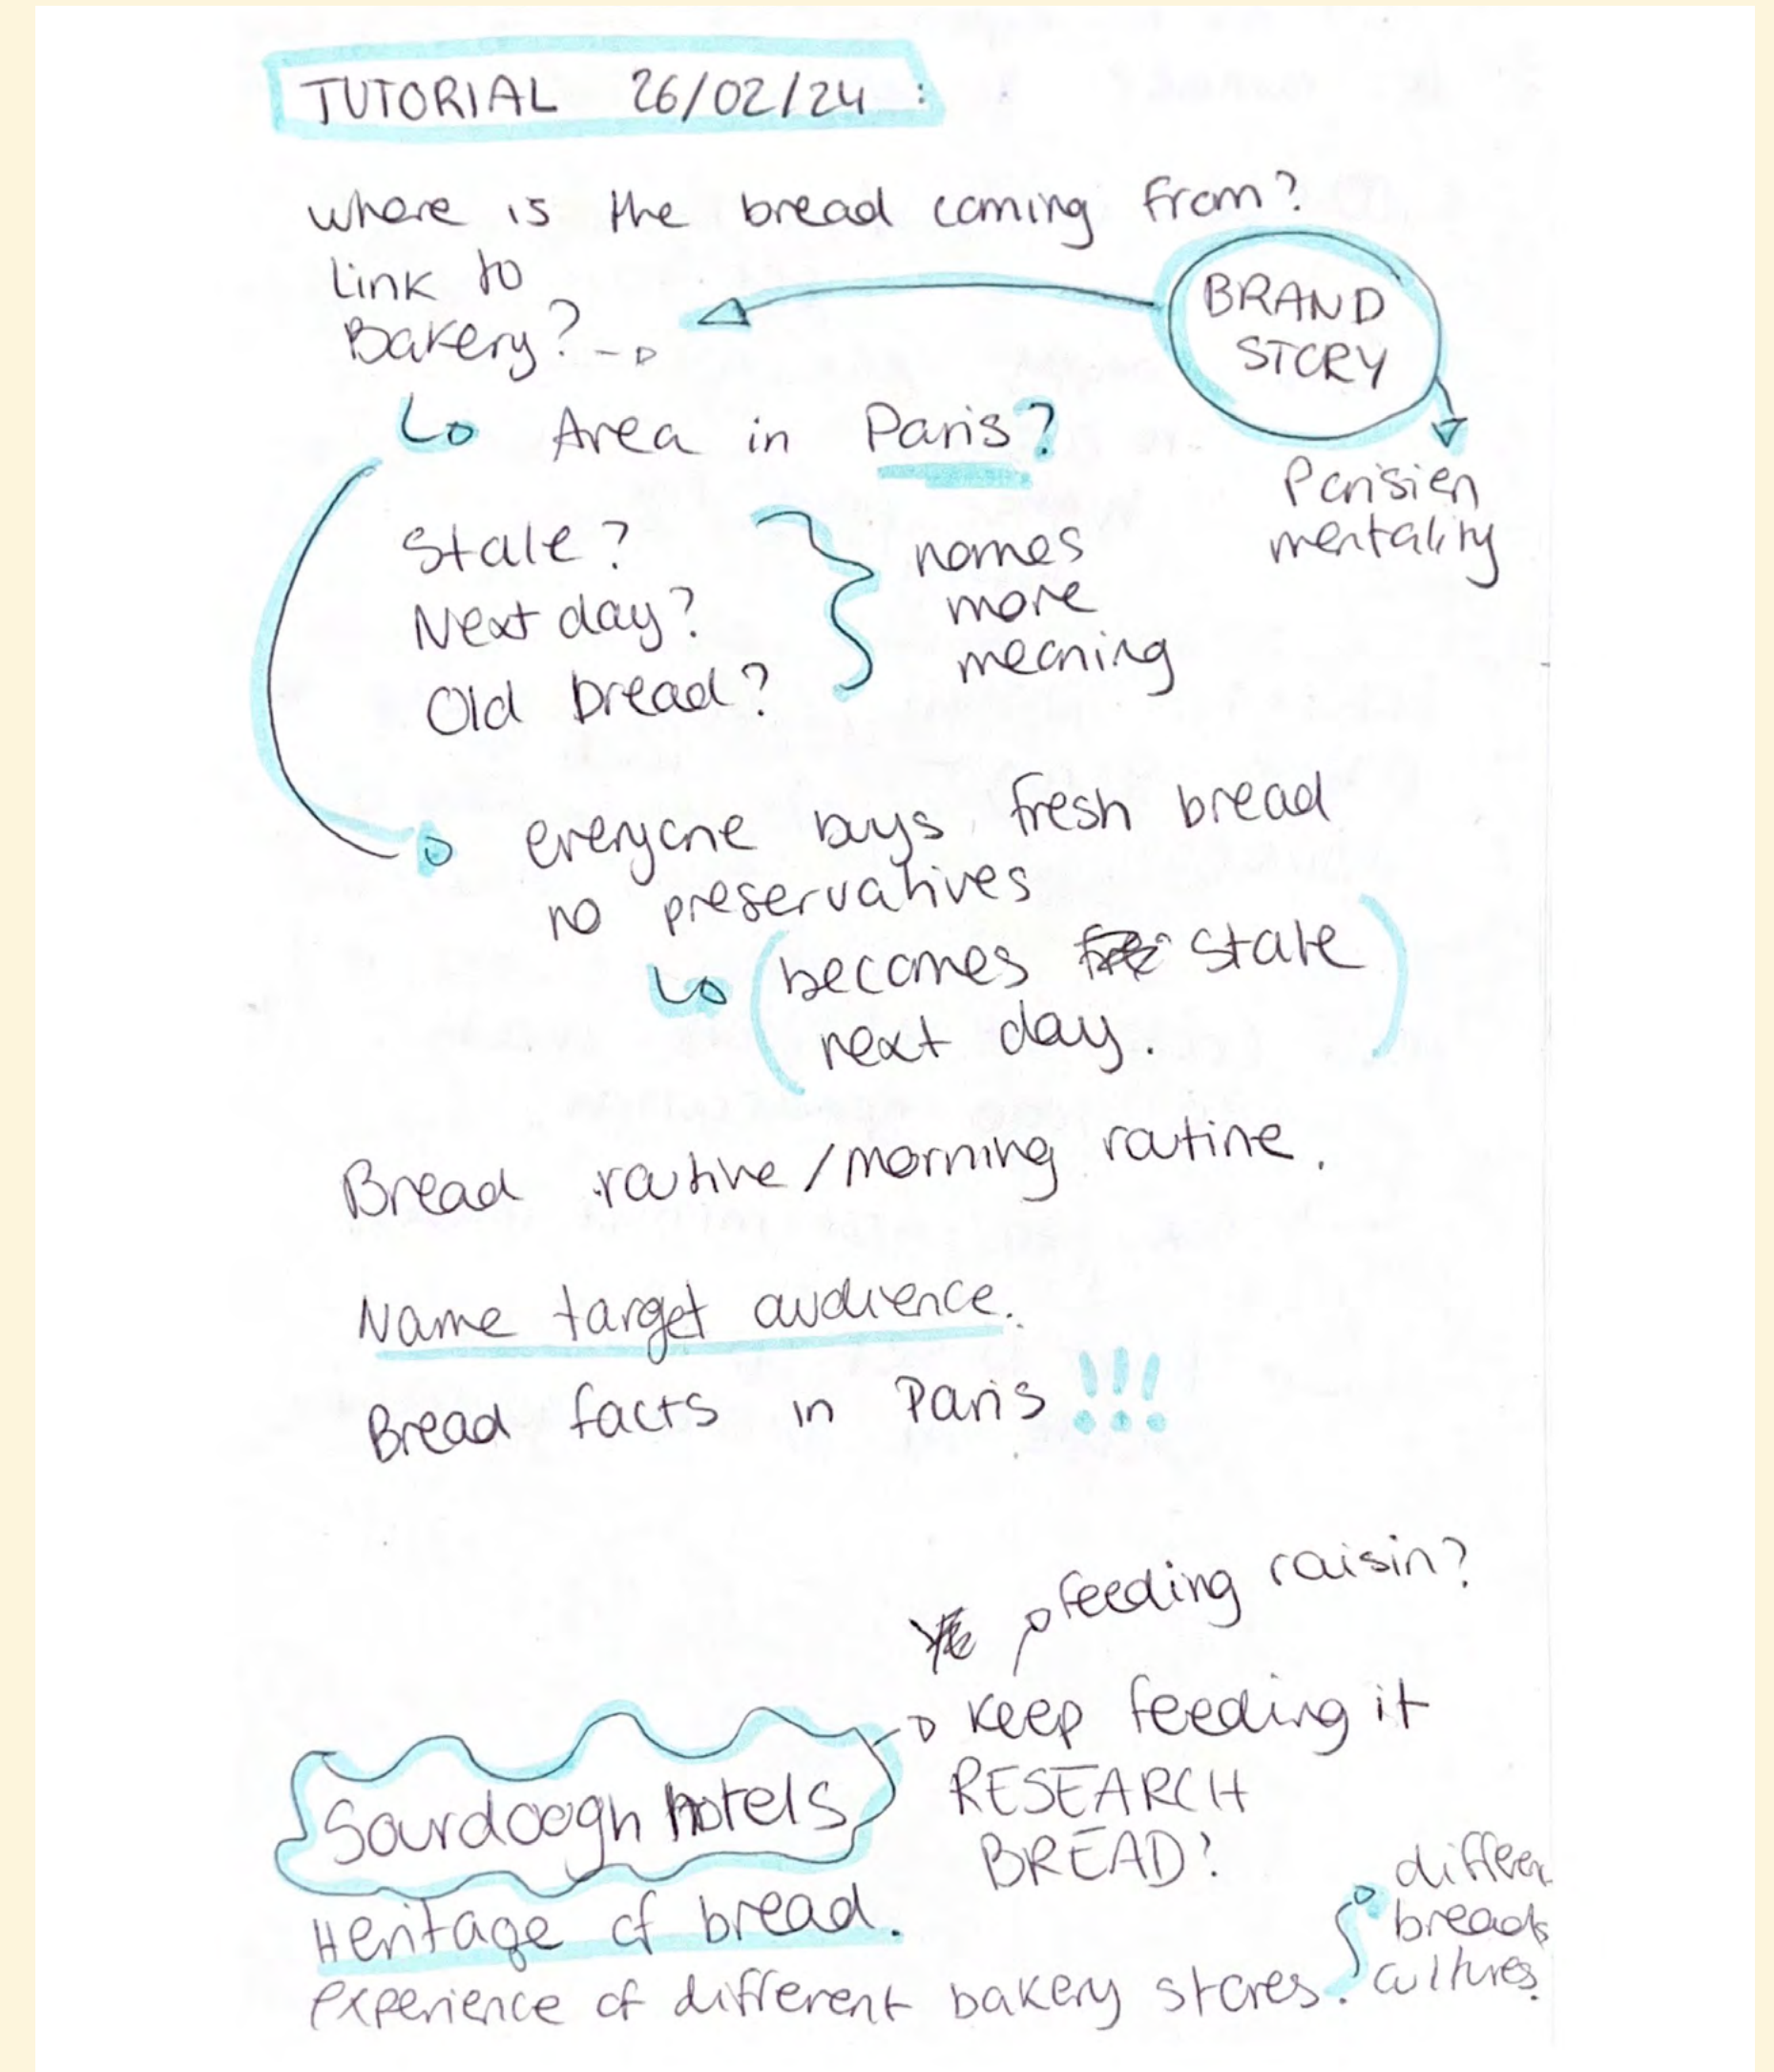 TUTORIAL 26/02/24 :
where is the bread coming from?
Link to
Bakery?
BRAND
STORY
Area in Paris?
Parisien
mentality
Stale?
Next day?
Old bread?
names
more
meaning
everyone buys fresh bread
no preservatives
(becomes stale
next day.)
Bread routine/morning routine.
Name target audience.
Bread facts in Paris !!!
feeding raisin?
Keep feeding it
RESEARCH
BREAD?
Sourdough hotels
Heritage of bread.
experience of different bakery stores.
differen
breads
cultures.